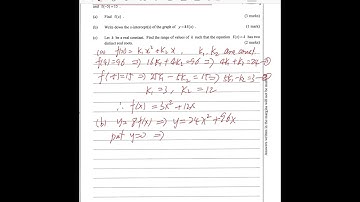 and f(-5) = 15 .
(a) Find f(x) . (3 marks)
(b) Write down the x-intercept(s) of the graph of y = 8f(x) . (1 mark)
(c) Let k be a real constant. Find the range of values of k such that the equation f(x) = k has two
distinct real roots. (2 marks)
(a) f(x) = k₁x² + k₂x , k₁, k₂ are const
f(4) = 96 ⇒ 16k₁ + 4k₂ = 96 ⇒ 4k₁ + k₂ = 24 —①
f(-5) = 15 ⇒ 25k₁ - 5k₂ = 15 ⇒ 5k₁ - k₂ = 3 —②
k₁ = 3, k₂ = 12
∴ f(x) = 3x² + 12x
(b) y = 8f(x) ⇒ y = 24x² + 96x
put y=0 ⇒